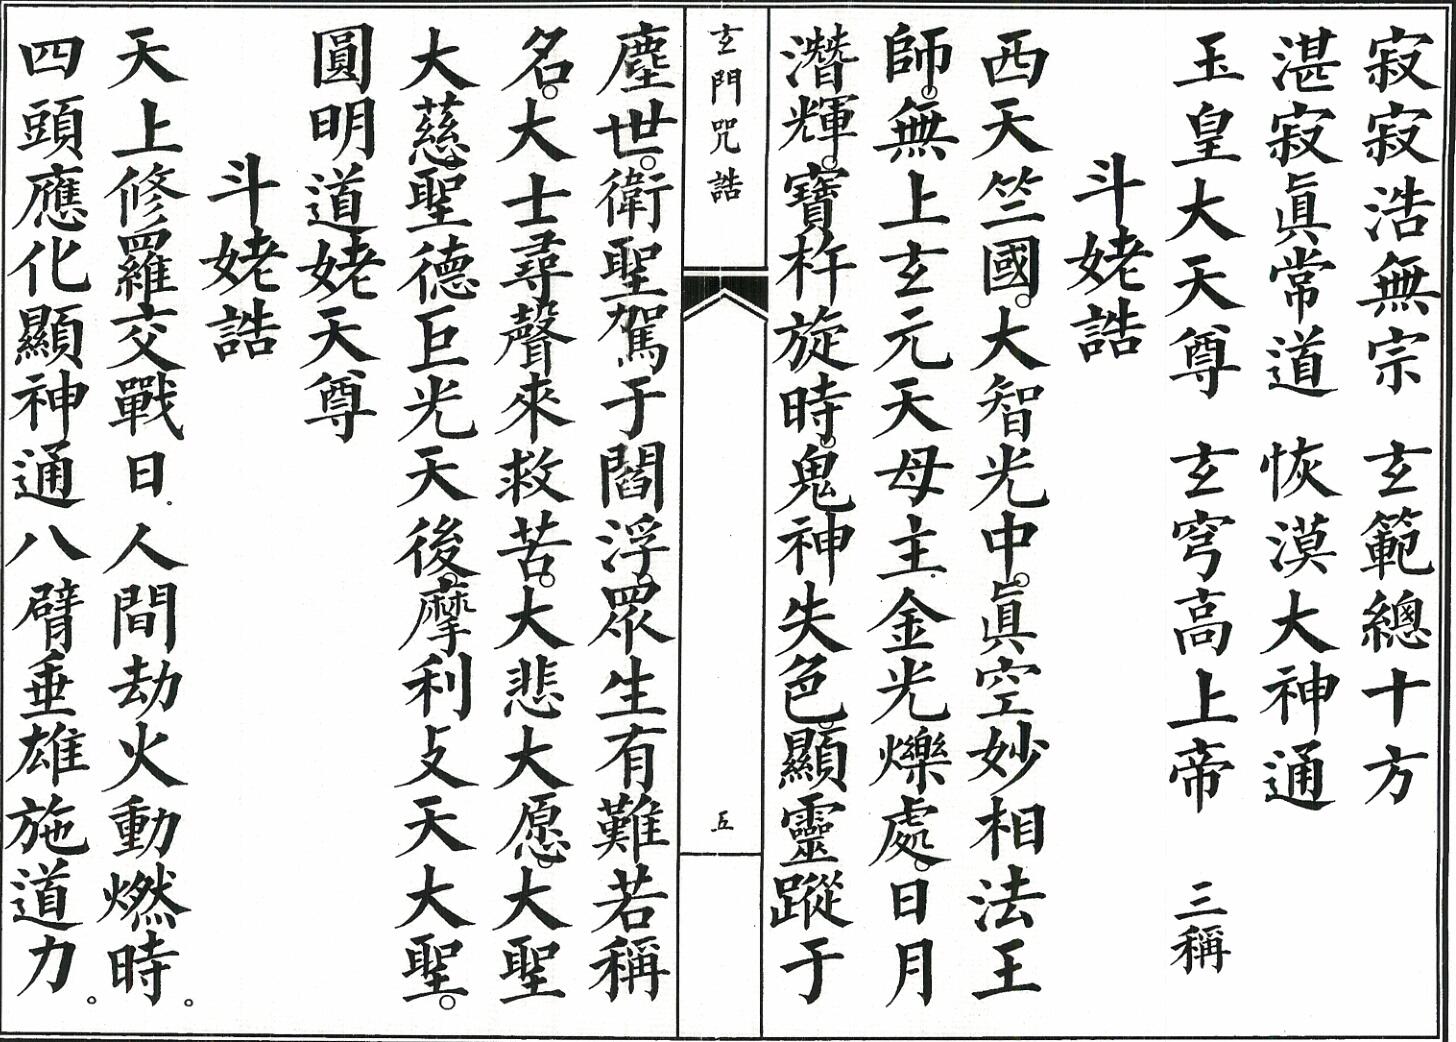 寂寂浩無宗　玄範總十方
湛寂眞常道　恢漠大神通
玉皇大天尊　玄穹高上帝　三稱
斗姥誥
西天竺國。大智光中。眞空妙相法王
師。無上玄元天母主.金光爍處。日月
潛輝。寶杵旋時。鬼神失色。顯靈蹤于
玄門咒誥
五
塵世。衛聖駕于閻浮。眾生有難若稱
名。大士尋聲來救苦。大悲大愿。大聖
大慈。聖德巨光天後。摩利攴天大聖。
圓明道姥天尊
斗姥誥
天上修羅交戰日。人間劫火動燃時。
四頭應化顯神通八臂垂雄施道力。